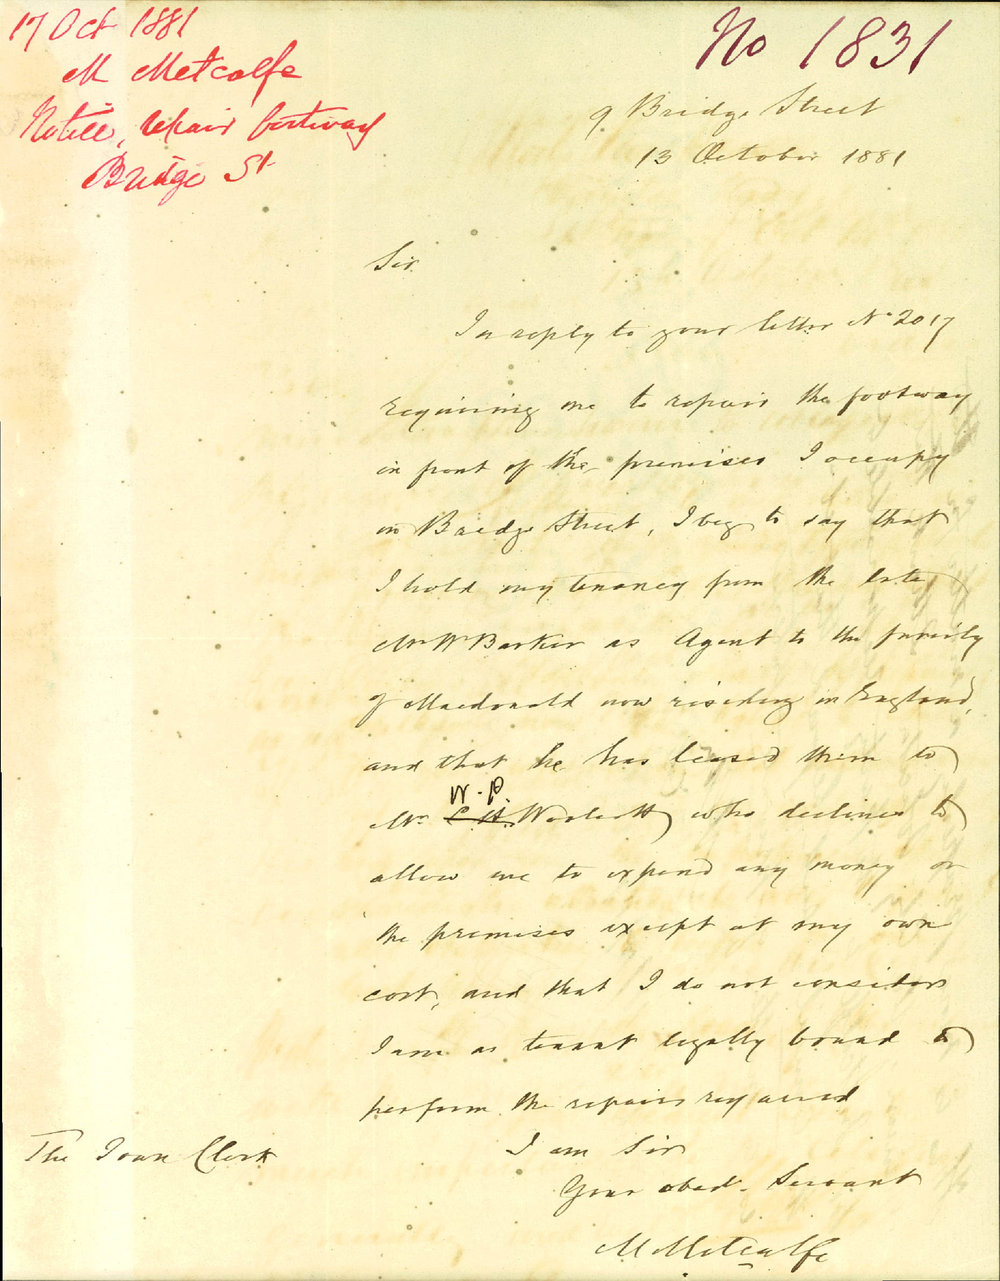 17 Oct 1881
M Metcalfe
Notice, repair footway
Bridge St
No 1831
9 Bridge Street
13 October 1881
Sir
In reply to your letter No 2017
requiring me to repair the footway
in front of the premises I occupy
in Bridge Street, I beg to say that
I hold my tenancy from the late
Mr W Barker as Agent to the family
of Macdonald now residing in England,
and that he has leased them to
Mr W. P. who declines to
allow me to expend any money on
the premises except at my own
cost, and that I do not consider
I am as tenant legally bound to
perform the repairs required
I am Sir
Your obed. Servant
M Metcalfe
The Town Clerk